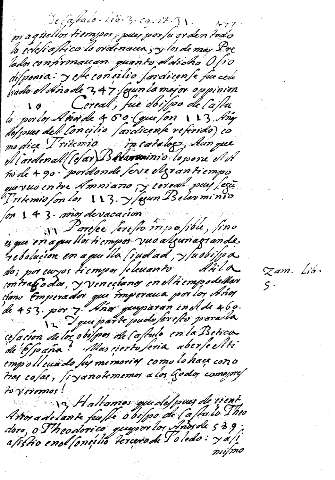 de Castulo. lib. 3. ca. 12. 31.
en aquellos tiempos, pues por su orden todo
lo eclesiastico lo ordenaua; y los demas Pre
lados confirmauan quanto el dicho Osio
disponia: y este concilio sardicense fue cele
brado el Año de 347 segun la mejor oppinion
10 Cereal, fue obispo de Castu
lo por los Años de 460 (que son 113 Años
despues del Concilio sardicense referido) co
mo dice Tritemio in catalogo, Aunque
el Cardenal Cesar Belarminio lo pone el A
ño de 490. por donde se ve el gran tiempo
que vuo entre Amniano, y cereal, pues segun
Tritemio son los 113. y segun Belarminio
son 143. años de vacacion
11 Paresce ser esto impossible, sino
es que en aquellos tiempos vuo alguna grande
rebolucion en aquella ciudad, y su obispa
do; por cuyos tiempos se leuanto Atila
contra Godos, y venecianos en el tiempo de Mar
ciano Emperador que imperaua por los Años
de 453. por 7. Años que pararon en el de 460.
12 I que parte pudo ser esto para la
cesacion de los obispos de Castulo en la Betica
de España? Mas cierto seria aberse el ti
empo lleuado sus memorias como lo hace con o
tras cosas, si ya no tenemos a los Godos como pres
to veremos!
13 Hallamos que despues de cient
Años adelante fuesse obispo de Castulo Theo
doro, o Theodorico que por los Años de 589.
asistio en el concilio tercero de Toledo: y asi
mismo
Zam. Lib.
5.